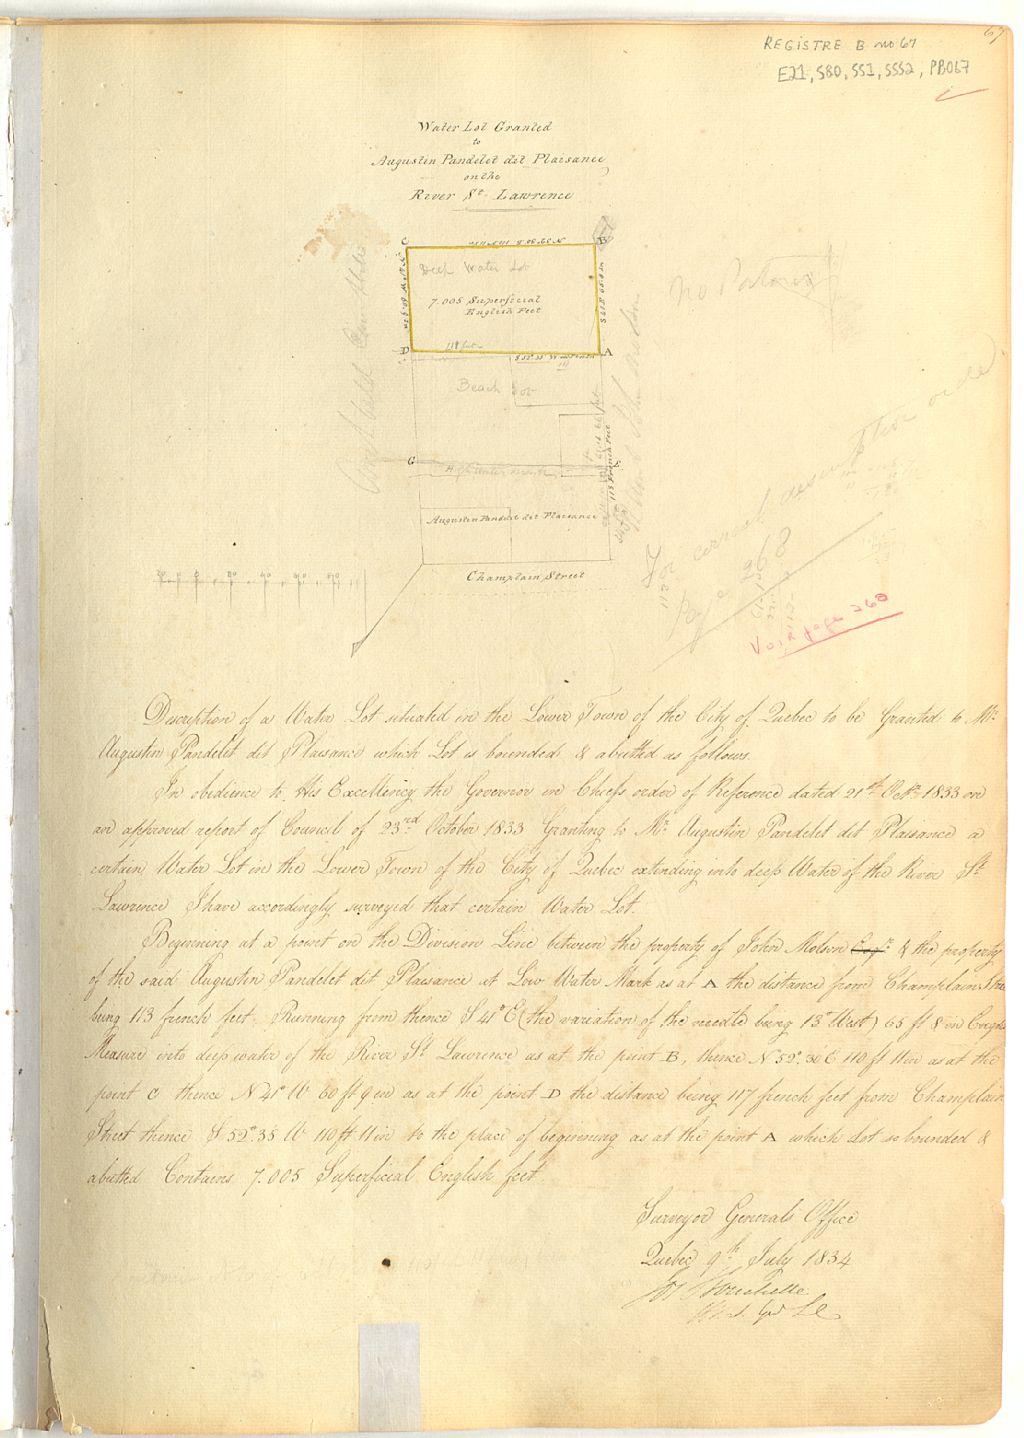 67
REGISTRE B no 67
E21, S80, SS1, SSS2, PB067
Water Lot Granted
to
Augustin Pandelet dit Plaisance,
on the
River St. Lawrence
C
B
Deep Water Lot
7.005 Superficial
English Feet
118 feet
D
A
Beach Lot
No Patent
G
High water mark
Augustin Pandelet dit Plaisance
Champlain Street
For correct description order
Page 268
Voir page 268
Description of a Water Lot situated in the Lower Town of the City of Quebec to be Granted to Mr.
Augustin Pandelet dit Plaisance which Lot is bounded & abutted as follows.
In obedience to His Excellency the Governor in Chiefs order of Reference dated 21st Octr. 1833 on
an approved report of Council of 23rd October 1833 Granting to Mr. Augustin Pandelet dit Plaisance a
certain Water Lot in the Lower Town of the City of Quebec extending into deep Water of the River St.
Lawrence I have accordingly surveyed that certain Water Lot.
Beginning at a point on the Division Line between the property of John Molson Esqr. & the property
of the said Augustin Pandelet dit Plaisance at Low Water Mark as at A the distance from Champlain Stre
being 113 french feet. Running from thence S 41° E (the variation of the needle being 13° West) 65 ft 8 in English
Measure into deep water of the River St. Lawrence as at the point B, thence N 52°. 30 E 110 ft 11 in as at the
point C thence N 41° W 60 ft 9 in as at the point D the distance being 117 french feet from Champlain
Street thence S 52°. 35 W 110 ft 11 in to the place of beginning as at the point A which Lot so bounded &
abutted Contains 7.005 Superficial English feet
Surveyor Generals Office
Quebec 9th July 1834
Jos Bouchette